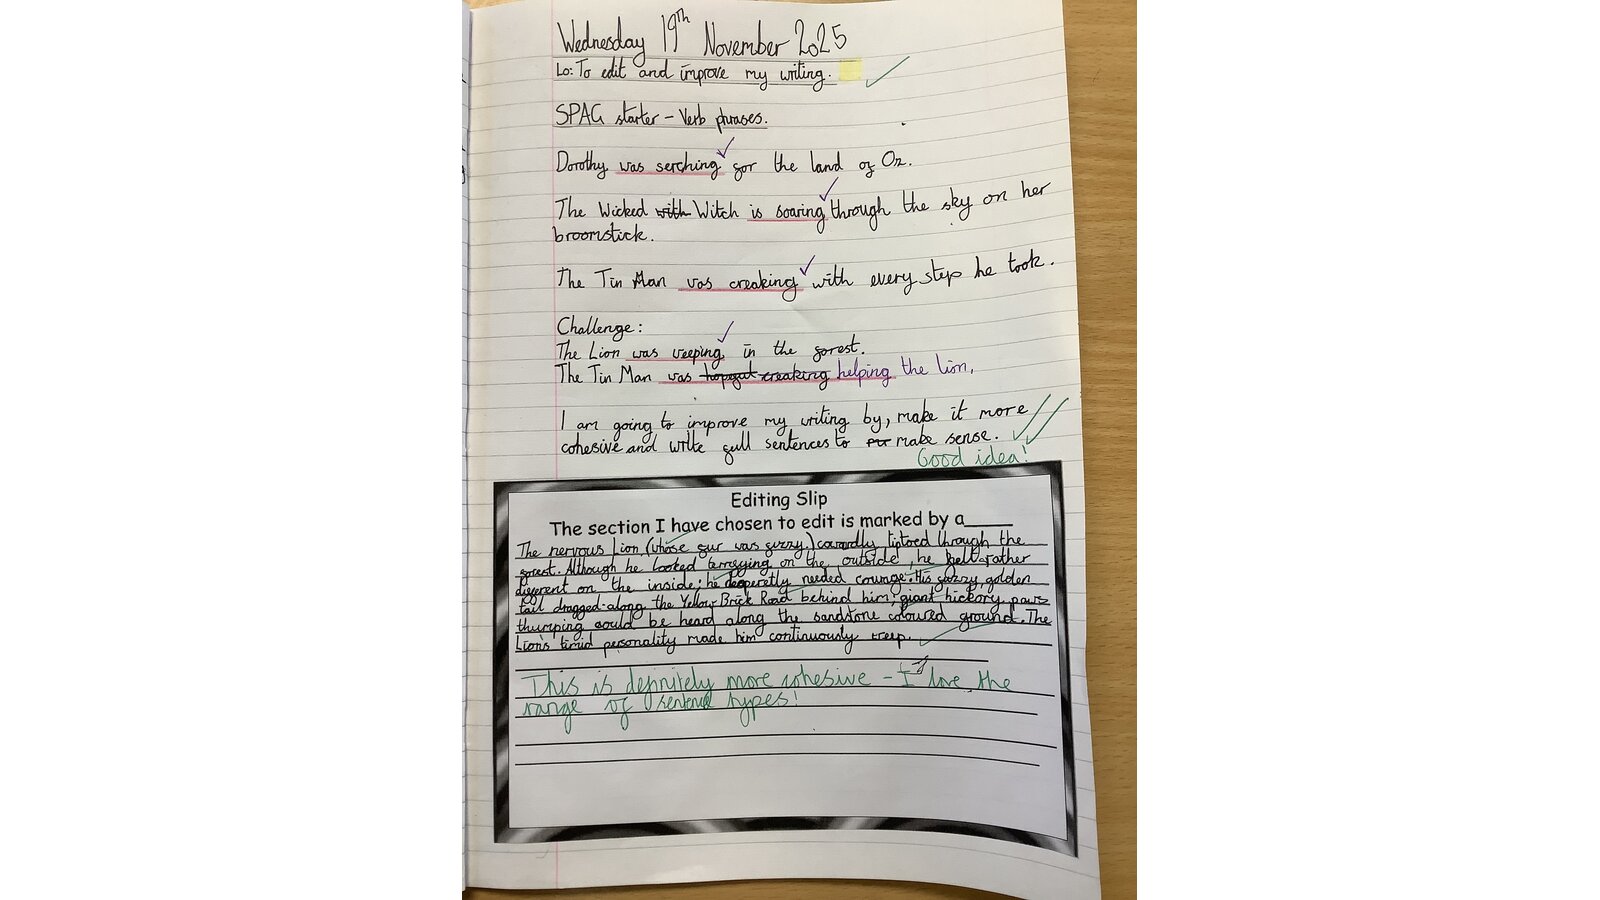 Wednesday 19th November 2025
Lo: To edit and improve my writing.
SPAG starter - Verb phrases.
Dorothy was serching for the land of Oz.
The Wicked with Witch is soaring through the sky on her
broomstick.
The Tin Man was creaking with every step he took.
Challenge:
The Lion was weeping in the forest.
The Tin Man was creaking helping the lion.
I am going to improve my writing by, make it more
cohesive and write full sentences to make sense.
Good idea!
Editing Slip
The section I have chosen to edit is marked by a____
The nervous Lion (whose fur was fuzzy) cowardly tiptoed through the
forest. Although he looked terrifying on the outside, he felt rather
different on the inside; he desperetly needed courage. His fuzzy, golden
tail dragged along the Yellow Brick Road behind him; giant hickory paws
thumping could be heard along the sandstone coloured ground. The
Lion's timid personality made him continuously weep.
This is definitely more cohesive - I love the
range of sentence types!